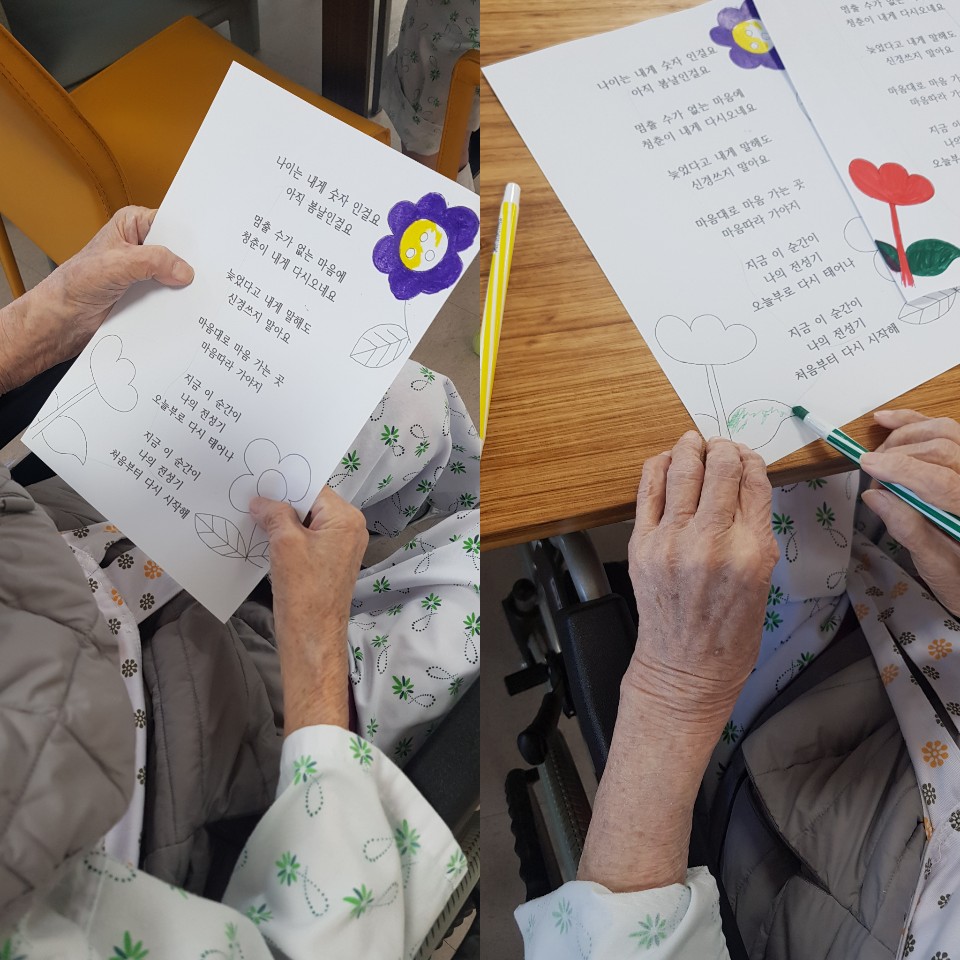 나이는 내게 숫자 인걸요
아직 봄날인걸요
멈출 수가 없는 마음에
청춘이 내게 다시오네요
늦었다고 내게 말해도
신경쓰지 말아요
마음대로 마음 가는 곳
마음따라 가야지
지금 이 순간이
나의 전성기
오늘부로 다시 태어나
지금 이 순간이
나의 전성기
처음부터 다시 시작해
나이는 내게 숫자 인걸요
아직 봄날인걸요
멈출 수가 없는 마음에
청춘이 내게 다시오네요
늦었다고 내게 말해도
신경쓰지 말아요
마음대로 마음 가는 곳
마음따라 가야지
지금 이 순간이
나의 전성기
오늘부로 다시 태어나
지금 이 순간이
나의 전성기
처음부터 다시 시작해
멈출 수가 없는 마음에
청춘이 내게 다시오네요
늦었다고 내게 말해도
신경쓰지 말아요
마음대로 마음
마음따라
지금 이
나의
오늘부